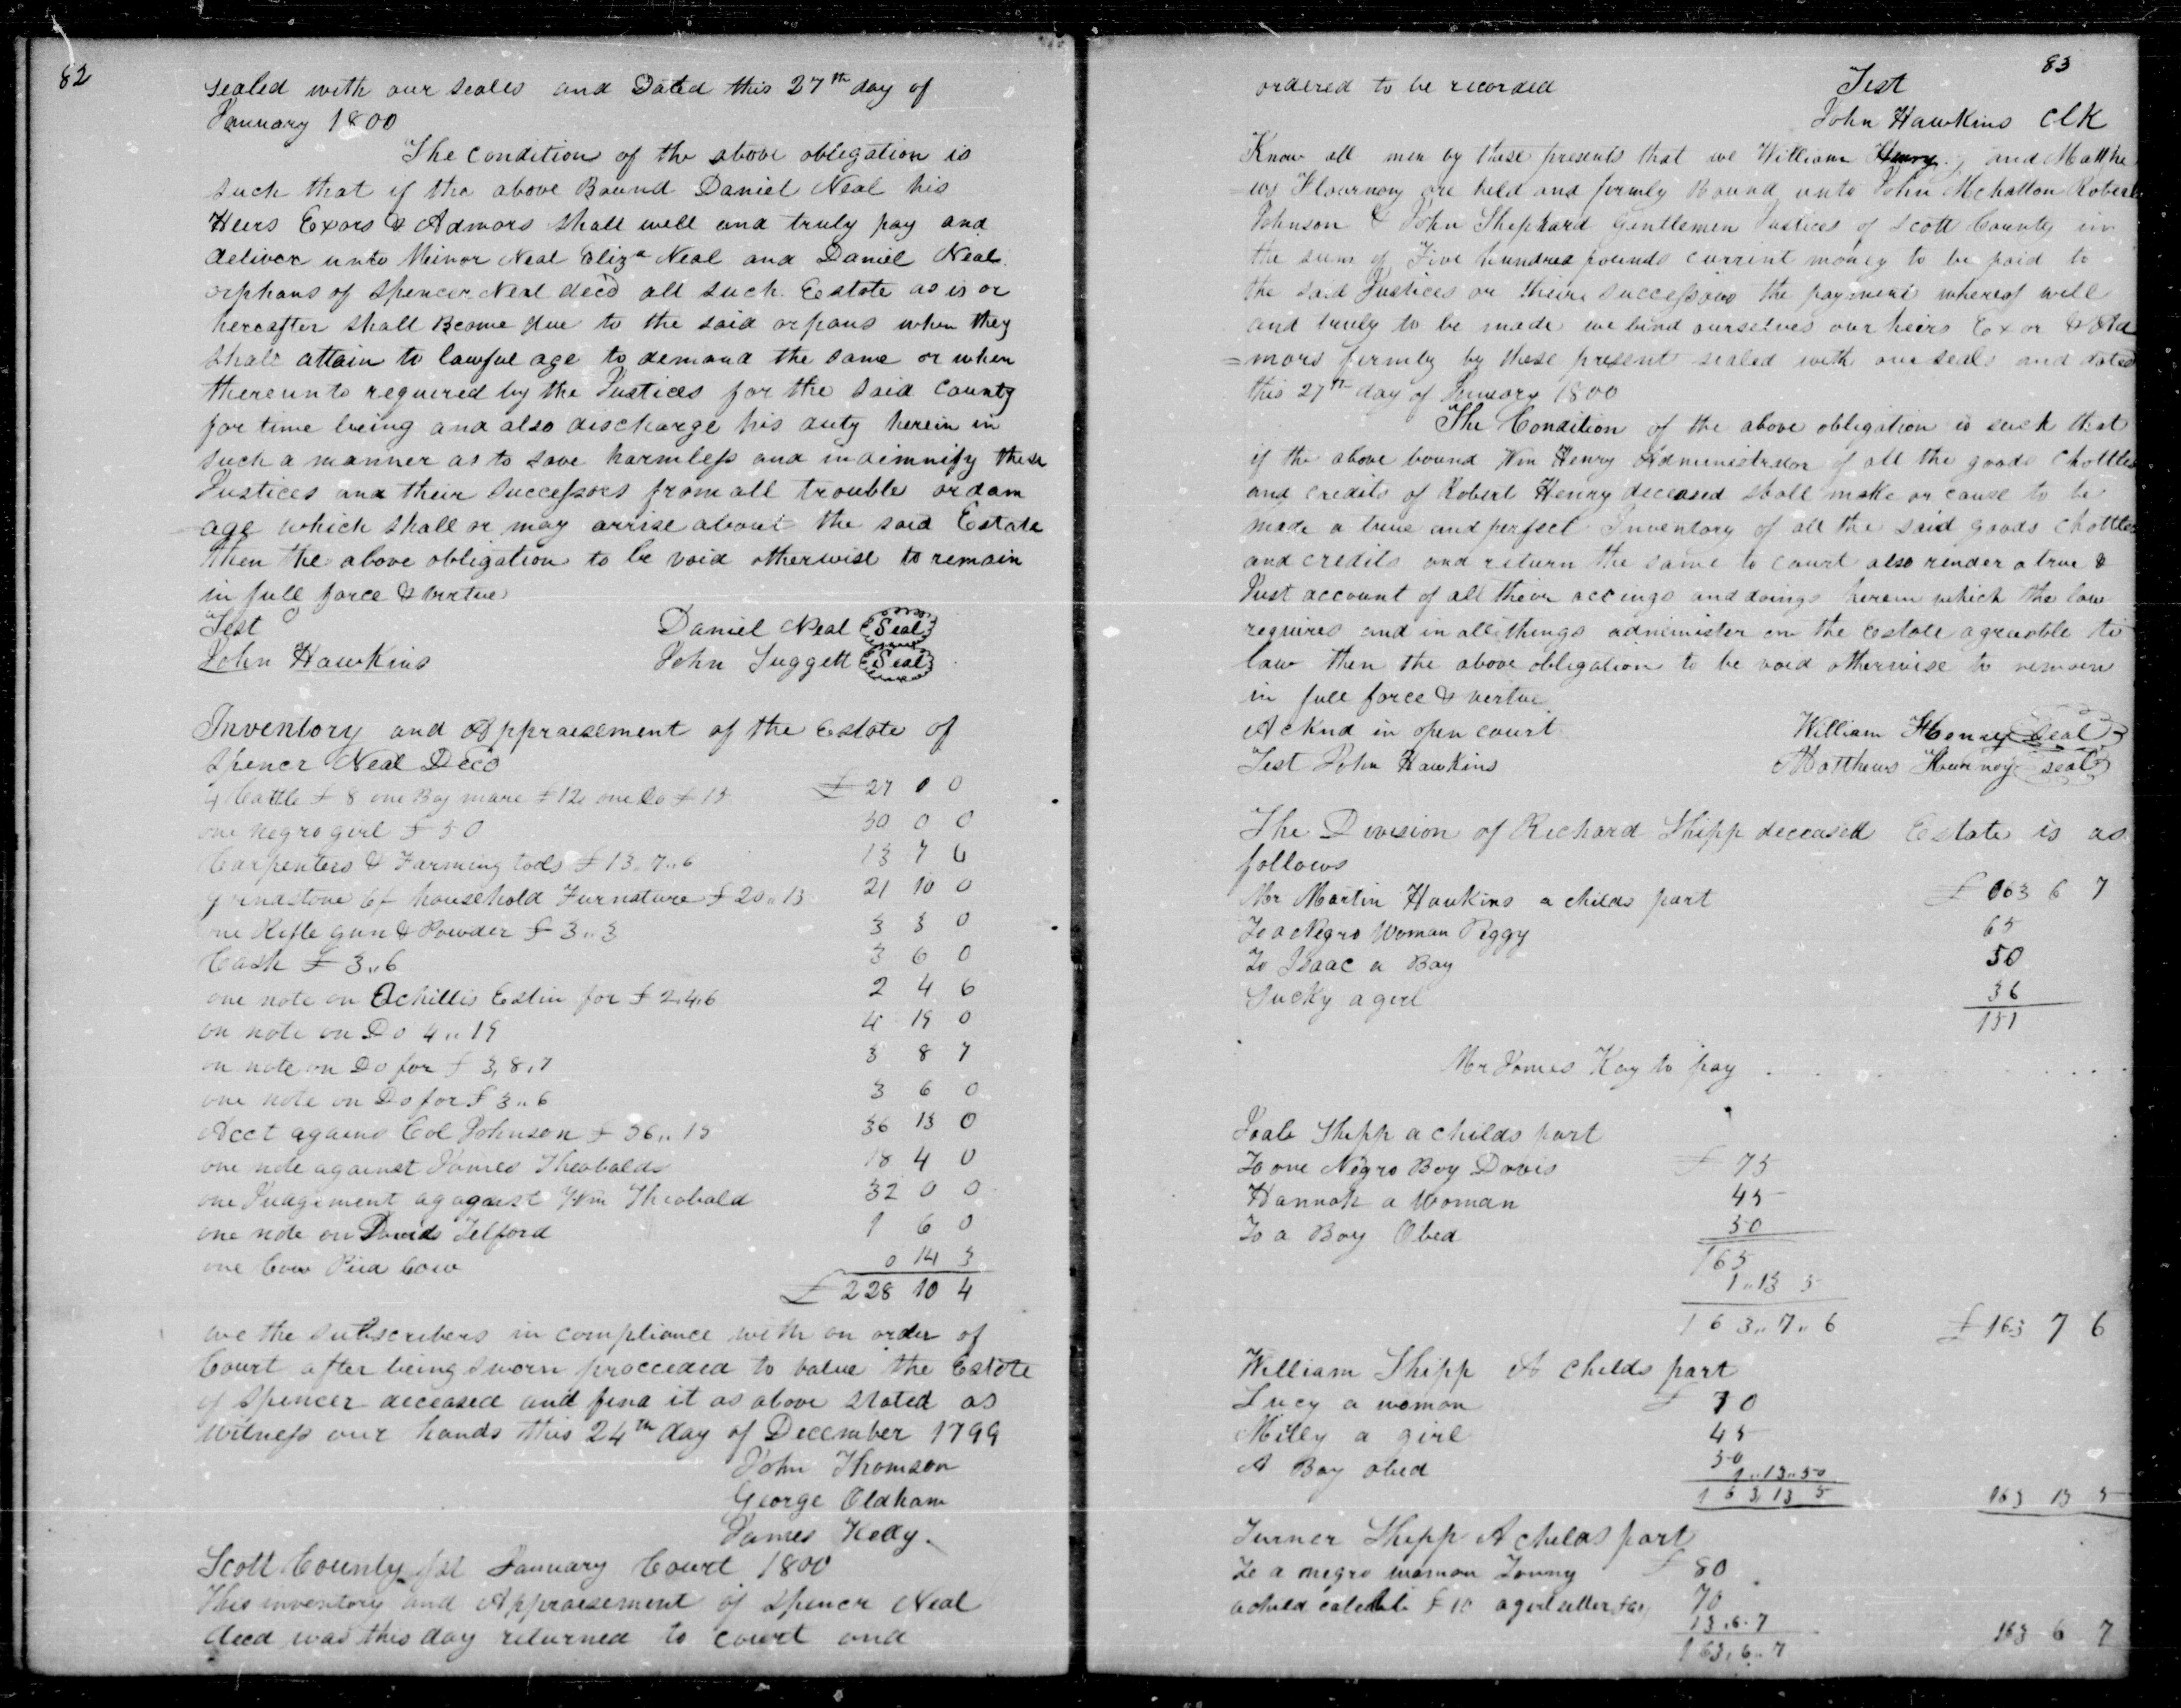 82
sealed with our seales and Dated this 27th day of
January 1800
The condition of the above oblegation is
such that if the above Bound Daniel Neal his
Heirs Exors & Admors shall well and truly pay and
deliver unto Minor Neal Eliza Neal and Daniel Neal
orphans of Spencer Neal decd all such Estate as is or
hereafter shall Bcome due to the said orpans when they
shall attain to lawful age to demand the same or when
thereunto requered by the Justices for the said County
for time being and also discharge his duty herein in
such a manner as to save harmless and indemnify these
Justices and their Successors from all trouble or dam
age which shall or may arrise about the said Estate
then the above obligation to be void otherwise to remain
in full force & virtue
Test
Daniel Neal Seal
John Hawkins
John Suggett Seal
Inventory and Appraisement of the Estate of
Spencr Neal Decd
4 Cattle £ 8 one Bay mare £ 12 one Do £ 15 £ 27 0 0
one negro girl £ 50 50 0 0
Carpenters & Farming tools £ 13..7..6 13 7 6
grindstone 6/ household Furnature £ 20..13 21 10 0
one Rifle gun & Powder £ 3..3 3 3 0
Cash £ 3..6 3 6 0
one note on Achillis Estin for £ 2.4.6 2 4 6
on note on Do 4..19 4 19 0
on note on Do for £ 3,8,7 3 8 7
one note on Do for £ 3..6 3 6 0
Acct agains Col Johnson £ 36..15 36 15 0
one note against James Theobalds 18 4 0
one Judgement agagaest Wm Theobald 32 0 0
one note on Davids Telford 1 6 0
one Cow Pied Cow 0 14 3
£ 228 10 4
we the subscribers in compliance with an order of
Court after being sworn procceded to value the Estate
of Spencer deceased and find it as above stated as
witness our hands this 24th day of December 1799
John Thomson
George Oldham
James Kelly
Scott County Sct January Court 1800
This inventory and Appraisement of Spencr Neal
decd was this day returned to court and
83
ordered to be recorded Test
John Hawkins Clk
Know all men by these presents that we William Henry and Matthe
ws Flournoy are held and firmly Bound unto John Mchatton Robert
Johnson & John Shephard Gentlemen Justices of Scott County in
the sum of Five hundred pounds current money to be paid to
the said Justices or their successors the payment whereof well
and truly to be made we bind ourselves our heirs Exor & Ad
=mors firmly by these present sealed with our seals and dated
this 27th day of January 1800
The Condition of the above obligation is such that
if the above bound Wm Henry Administrator of all the goods Chattles
and credits of Robert Henry deceased shall make or cause to be
made a true and perfect Inventory of all the said goods Chattles
and credits and return the same to court also render a true &
Just account of all their accings and doings herein which the law
requires and in all things administer on the Estate agreable to
law then the above obligation to be void otherwise to remain
in full force & virtue
Acknd in open court William Henry Seal
Test John Hawkins Matthews Flournoy seal
The Division of Richard Shipp deceased Estate is as
follows
Mr Martin Hawkins a childs part £ 163 6 7
To a Negro Woman Peggy 65
To Isaac a Boy 50
Sucky a girl 36
151
Mr James Kay to pay . . . . . .
Shipp a childs part
To one Negro Boy Davis £ 75
Hannah a Woman 45
To a Boy Obed 50
165
1..13 5
163..7..6 £ 163 7 6
William Shipp A childs part
Lucy a woman £ 70
Milly a girl 45
A Boy obed 50
1..13..50
163 13 5 163 13 5
Turner Shipp A childs part
To a negro woman £ 80
a child £ 10 a girl 70
13.6.7
163.6..7 163 6 7